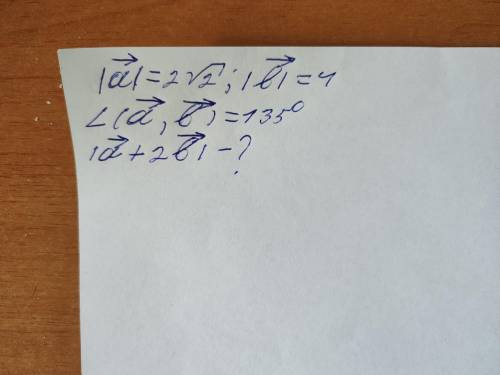 |a⃗|=2√2; |b⃗|=4
∠(a⃗, b⃗)=135°
|a⃗+2b⃗|-?